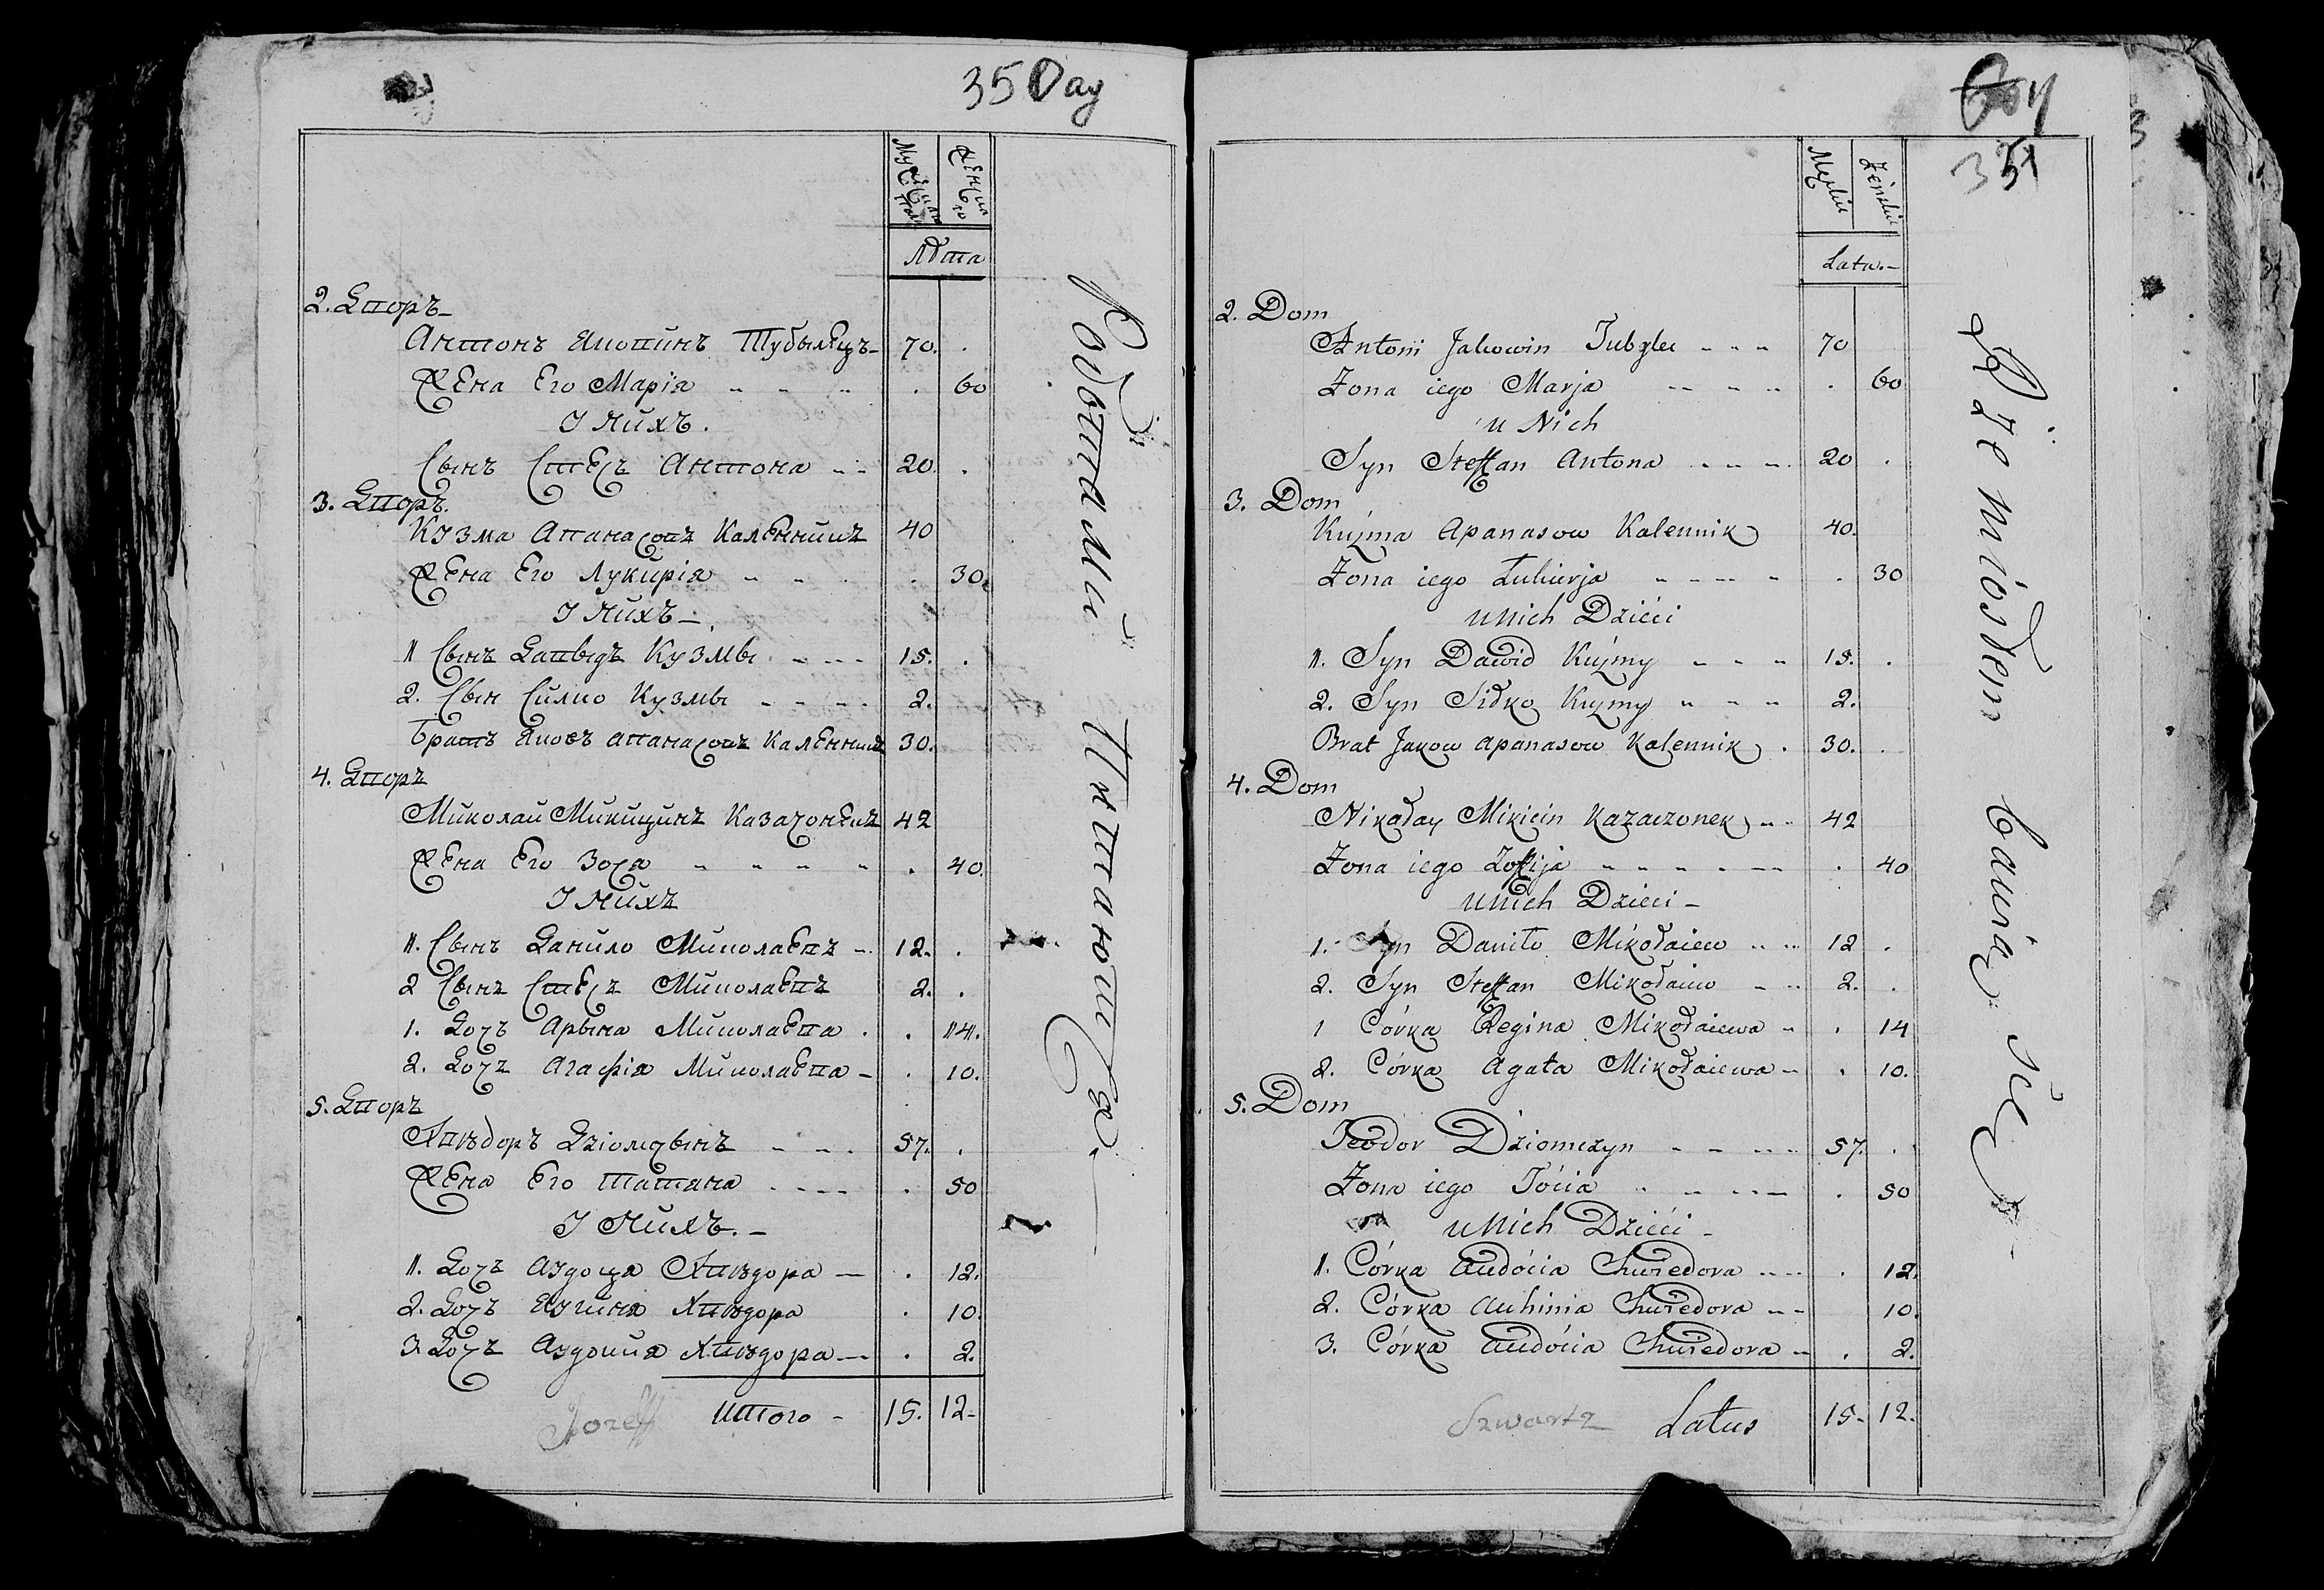 35 Day
Лѣта
2. Дворъ
Антонъ Яковинъ Тубылецъ 70.
Жена Его Марія 60
У Нихъ.
Сынъ Стесь Антона 20.
3. Дворъ.
Кузма Апанасовъ Каленникъ 40
Жена Его Лукирія 30.
У Нихъ
1 Сынъ Давыдъ Кузмы 15.
2. Сын Силко Кузмы 2.
Братъ Яковъ Апанасовъ Каленникъ 30.
4. Дворъ
Миколай Микицинъ Казачонекъ 42
Жена Его Зося 40.
У Нихъ
1. Сынъ Данило Миколаевъ 12.
2 Сынъ Стесь Миколаевъ 2.
1. Дочь Арына Миколаева 14.
2. Дочь Агафія Миколаева 10.
5. Дворъ
Хвѣдоръ Дзіомчынъ 57.
Жена Его Татяна 50
У Нихъ.
1. Дочь Аудоця Хвѣдора 12.
2. Дочь Хвѣдора 10.
3. Дочь Хвѣдора 2.
Jozeff Итого 15. 12
Męskie Żeńskie
Lata.
2. Dom
Antoni Jakowin Tubylec 70
Żona iego Marja 60
u Nich
Syn Steffan Antona 20
3. Dom
Kuźma Apanasow Kalennik 40.
Żona iego Łukierja 30
u Nich Dzieci
1. Syn Dawid Kuźmy 15.
2. Syn Sidko Kuźmy 2.
Brat Jakow Apanasow Kalennik 30.
4. Dom
Nikałay Mikicin Kazaczonek 42
Żona iego Zoffija 40
u Nich Dzieci
1. Syn Daniło Mikołaiew 12
2. Syn Steffan Mikołaiew 2.
1 Córka Regina Mikołaiewa 14
2. Córka Agata Mikołaiewa 10.
5. Dom
Teodor Dziomczyn 57.
Żona iego Tócia 50
u Nich Dzieci
1. Córka Audócia Chwiedora 12.
2. Córka Auhinia Chwiedora 10.
3. Córka Audócia Chwiedora 2.
Szwartz Latus 15. 12.